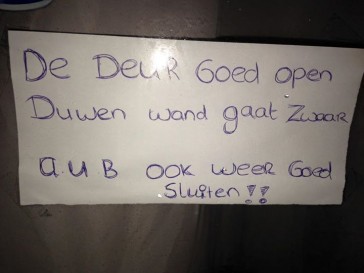 De Deur Goed open
Duwen wand gaat Zwaar
a.u B ook weer Goed
Sluiten !!